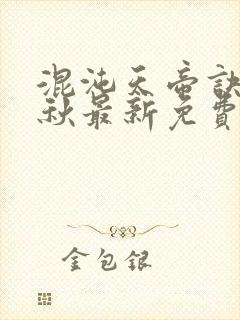 混沌天帝訣
秋最新免費
金包銀